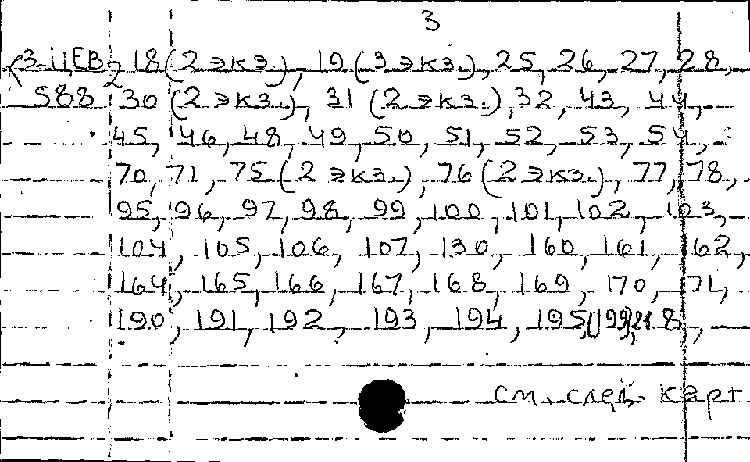 3
3-ЦЕВ 18 (2 экз.), 19 (3 экз.), 25, 26, 27, 28,
588 30 (2 экз.), 31 (2 экз.), 32, 43, 44,
45, 46, 48, 49, 50, 51, 52, 53, 54,
70, 71, 75 (2 экз.), 76 (2 экз.), 77, 78,
95, 96, 97, 98, 99, 100, 101, 102, 103,
104, 105, 106, 107, 130, 160, 161, 162,
164, 165, 166, 167, 168, 169, 170, 171,
190, 191, 192, 193, 194, 195,
см. след. карт